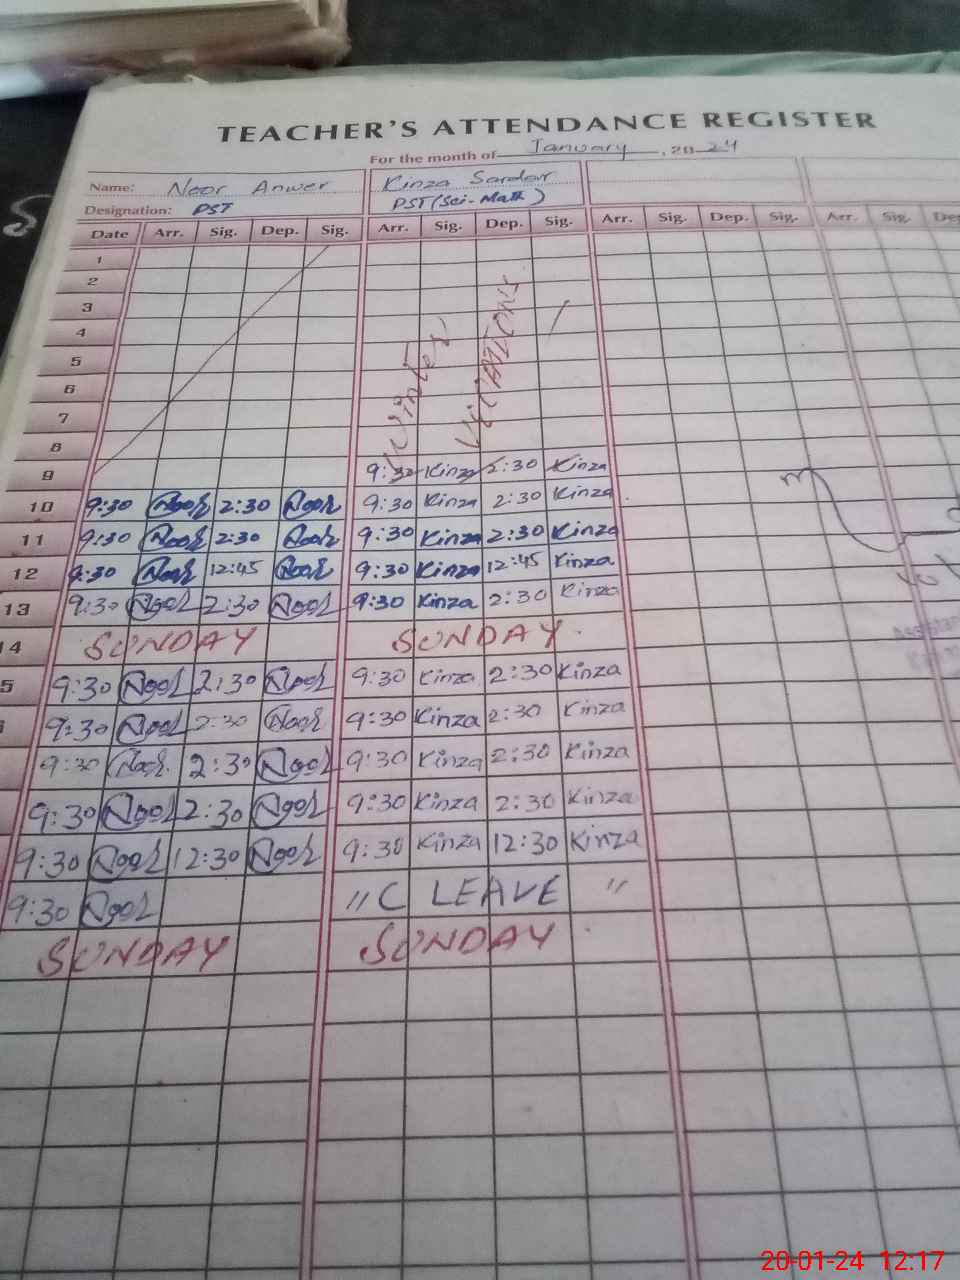 TEACHER'S ATTENDANCE REGISTER
For the month of January, 2024
Name: Noor Anwer Kinza Sardar
Designation: PST PST (Sci-Math)
Date Arr. Sig. Dep. Sig. Arr. Sig. Dep. Sig. Arr. Sig. Dep. Sig. Arr. Sig. De
1
2
3
4
5
6
7
8
Winter
9 9:30 Kinza 2:30 Kinza
10 9:30 Noor 2:30 Noor 9:30 Kinza 2:30 Kinza
11 9:30 Noor 2:30 Noor 9:30 Kinza 2:30 Kinza
12 9:30 Noor 12:45 Noor 9:30 Kinza 12:45 Kinza
13 9:30 Noor 2:30 Noor 9:30 Kinza 2:30 Kinza
14 SUNDAY SUNDAY
5 9:30 Noor 2:30 Noor 9:30 Kinza 2:30 Kinza
9:30 Noor 2:30 Noor 9:30 Kinza 2:30 Kinza
9:30 Noor 2:30 Noor 9:30 Kinza 2:30 Kinza
9:30 Noor 2:30 Noor 9:30 Kinza 2:30 Kinza
9:30 Noor 12:30 Noor 9:30 Kinza 12:30 Kinza
9:30 Noor "C LEAVE "
SUNDAY SUNDAY
20-01-24 12:17